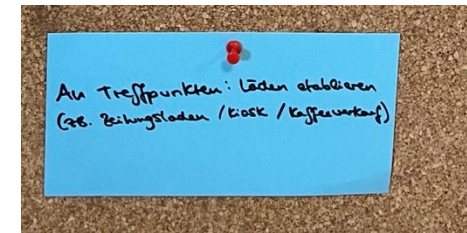 An Treffpunkten: Läden etablieren
(zB. Zeitungsladen / Kiosk / Kaffeeverkauf)